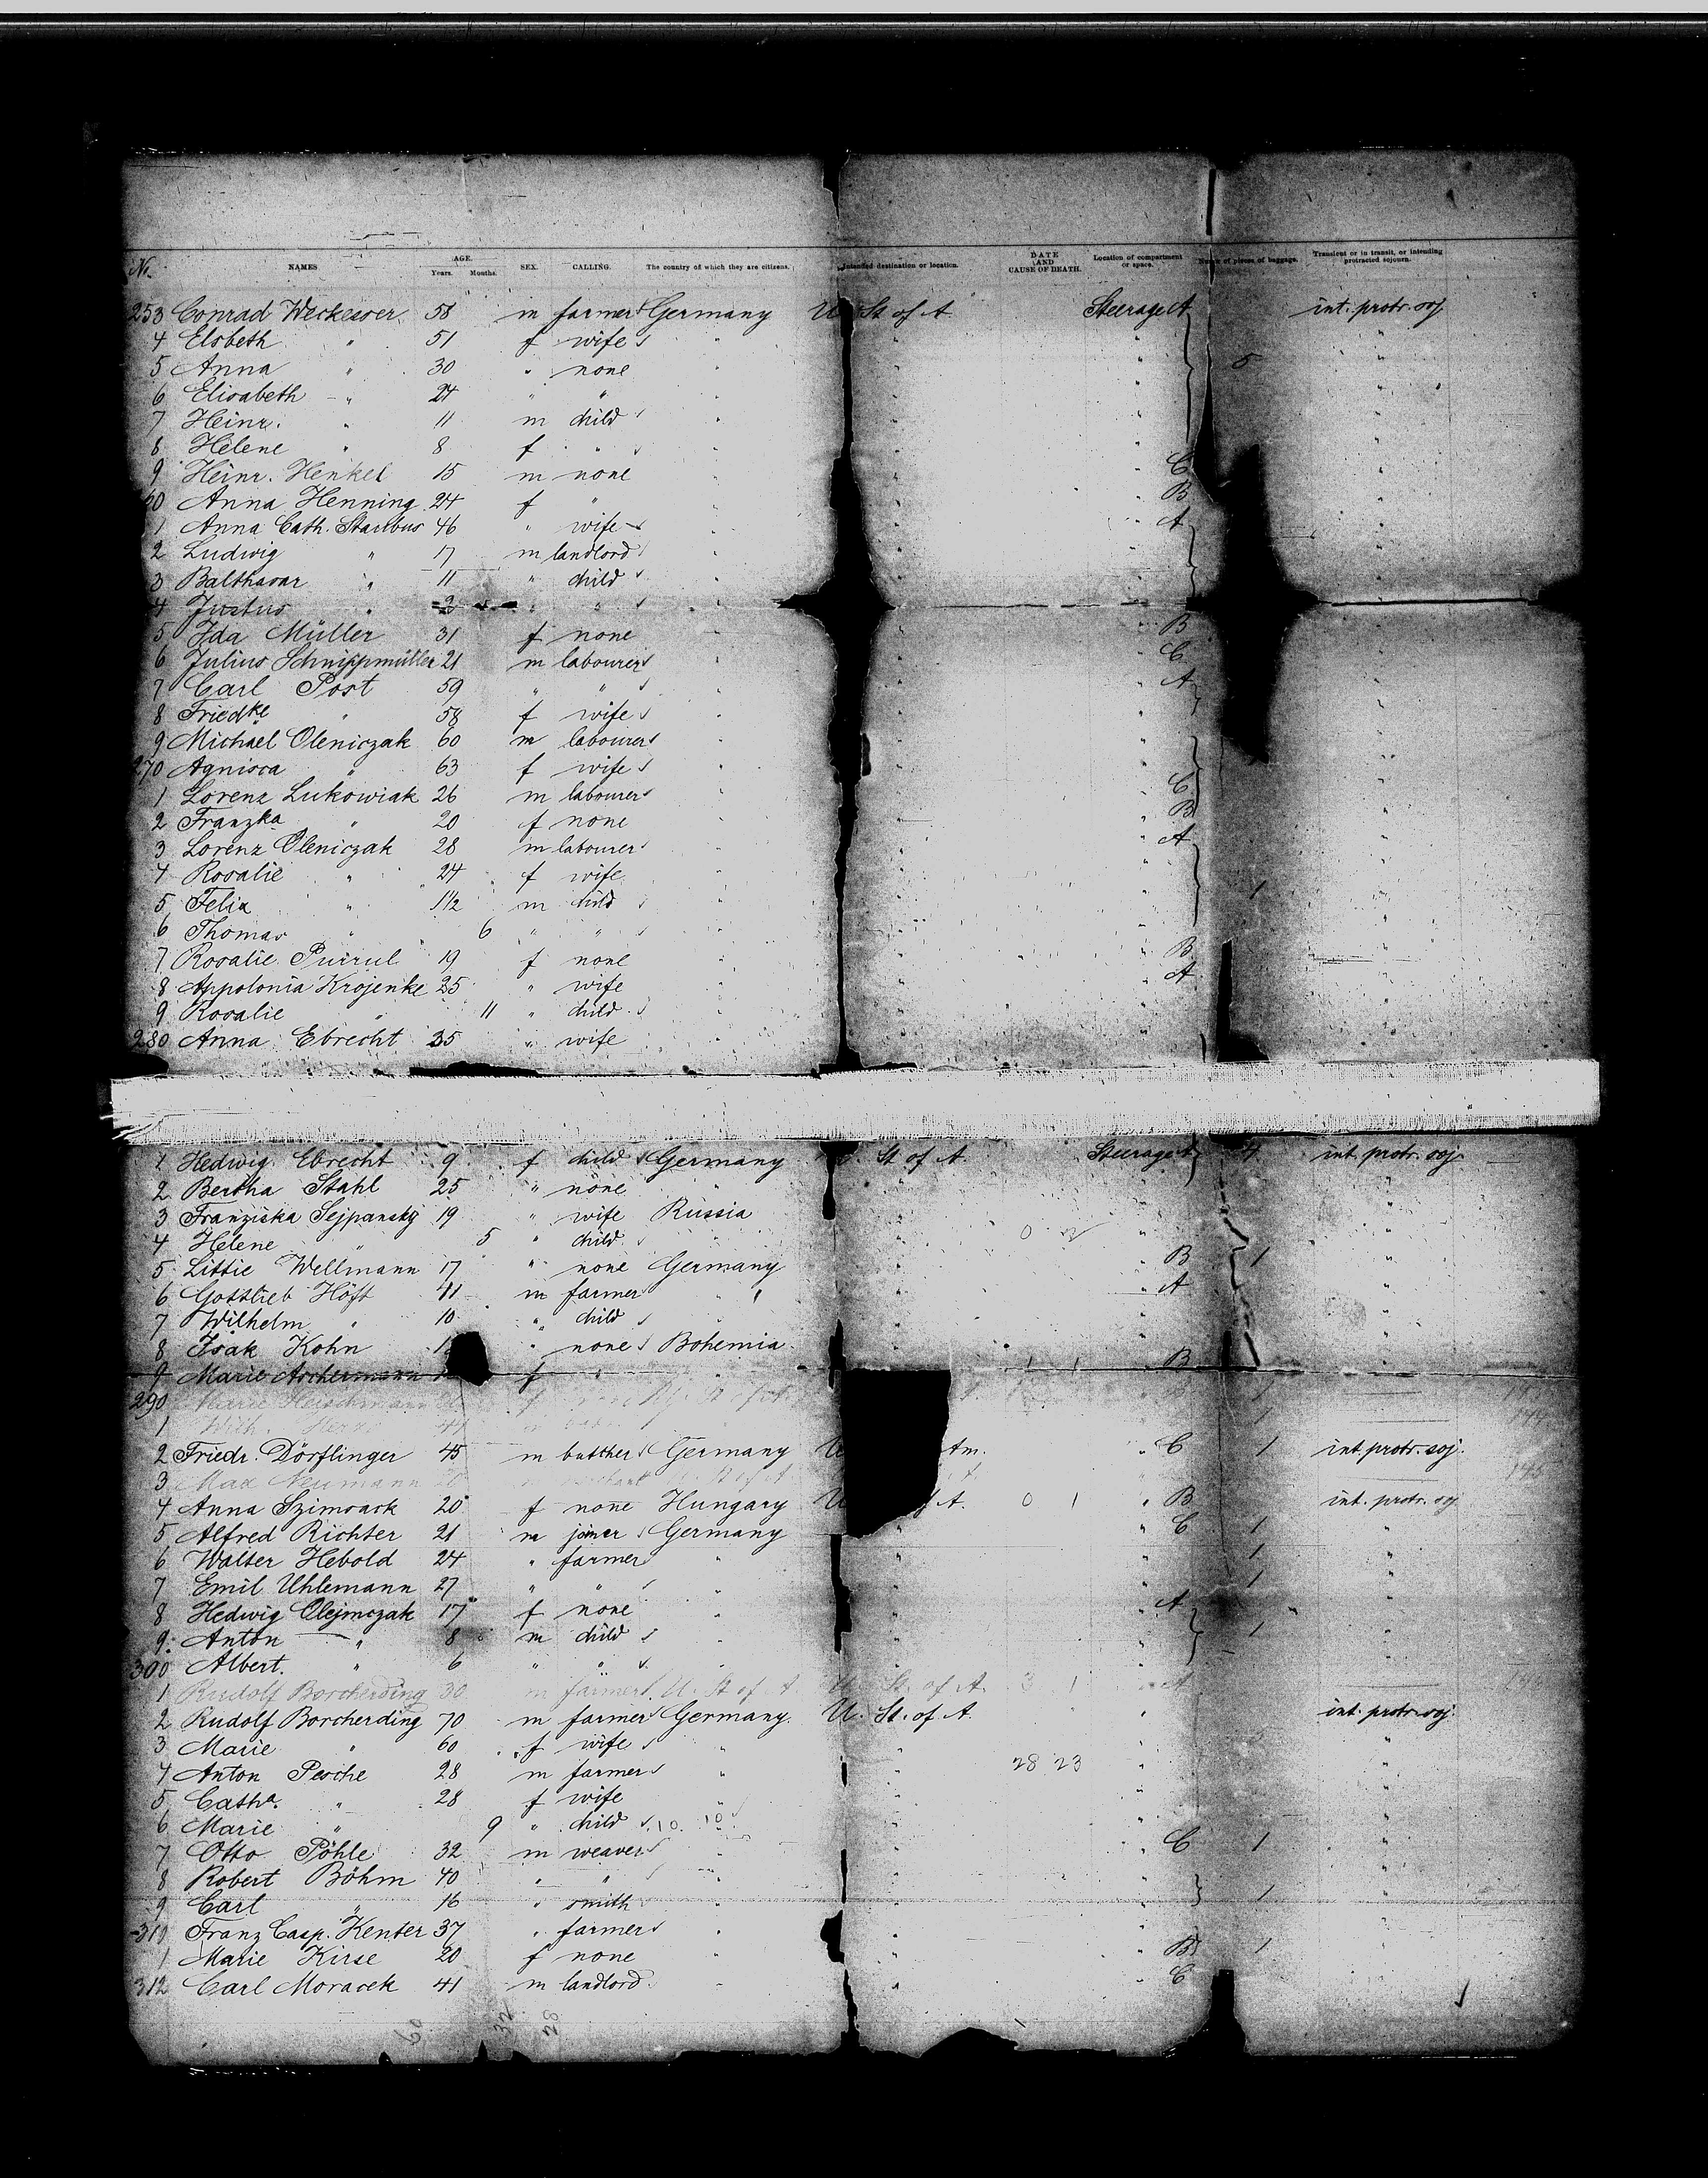 No. NAMES AGE. Years. Months. SEX. CALLING. The country of which they are citizens. Intended destination or location. DATE AND CAUSE OF DEATH. Location of compartment or space. of pieces of baggage. Transient or in transit, or intending protracted sojourn.
253 Conrad Weckesser 58 m farmer Germany U St of A. Steerage A int. protr. soj
4 Elsbeth " 51 f wife "
5 Anna " 30 " none " 5
6 Elisabeth " 24 " " "
7 Heinr. " 11 m child "
8 Helene " 8 f " "
9 Heinr. Henkel 15 m none " C
60 Anna Henning 24 f " " B
1 Anna Cath. Staubus 46 " wife " A
2 Ludwig " 17 m landlord "
3 Balthasar " 11 " child "
4 Justus " " " "
5 Ida Müller 31 f none " B
6 Julius Schnippmüller 21 m labourer " C
7 Carl Post 59 " " " A
8 Friedke " 58 f wife "
9 Michael Oleniczak 60 m labourer "
270 Agnisca " 63 f wife "
1 Lorenz Lukowiak 26 m labourer " C
2 Franzka " 20 f none " B
3 Lorenz Oleniczak 28 m labourer " A
4 Rosalie " 24 f wife " 1
5 Felix " 1 1/2 m child "
6 Thomas " 6 " " "
7 Rosalie 19 f none " B
8 Appolonia Krojenke 25 " wife " A
9 Rosalie " 11 " child "
280 Anna Ebrecht 35 " wife "
1 Hedwig Ebrecht 9 f child Germany St of A. Steerage A 4 int. protr. soj
2 Bertha Stahl 25 " none "
3 Franziska Sejpansky 19 " wife Russia
4 Helene " 5 " child " 0
5 Littie Wellmann 17 " none Germany B 1
6 Gottlieb Höft 41 m farmer " A
7 Wilhelm " 10 " child "
8 Isak Kohn " none Bohemia
9 Marie Aschermann f " " 1 1 B
290 Marie Fleischmann f
1 Wilh.
2 Friedr. Dörflinger 45 m butcher Germany U Am. C 1 int. protr. soj.
3 Max Neumann 145
4 Anna Szimsack 20 f none Hungary U of A. 0 1 B int. protr. soj
5 Alfred Richter 21 m joiner Germany C 1 "
6 Walter Hebold 24 " farmer " 1 "
7 Emil Uhlemann 27 " " " 1 "
8 Hedwig Olejniczak 17 f none " A
9 Anton " 8 m child " 1 "
300 Albert. " 6 " " "
1 Rudolf Borcherding 30 m farmer U. St of A. U. St. of A. 3 1 A
2 Rudolf Borcherding 70 m farmer Germany. U. St. of A. int. protr. soj.
3 Marie " 60 f wife "
4 Anton Pesche 28 m farmer " 28 23
5 Catha. " 28 f wife "
6 Marie " 9 " child 10. 10
7 Otto Pöhle 32 m weaver " C 1
8 Robert Böhm 40 " " "
9 Carl " 16 " smith " 1
310 Franz Casp. Kenter 37 " farmer "
1 Marie Kirse 20 f none " B 1
312 Carl Moracek 41 m landlord " C
60 32 28